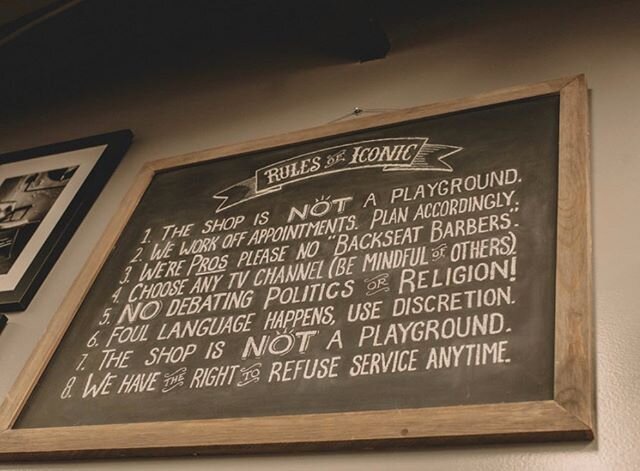 RULES OF ICONIC
1. THE SHOP IS NOT A PLAYGROUND.
2. WE WORK OFF APPOINTMENTS. PLAN ACCORDINGLY.
3. WE'RE PROS PLEASE NO "BACKSEAT BARBERS".
4. CHOOSE ANY TV CHANNEL (BE MINDFUL OF OTHERS)
5. NO DEBATING POLITICS OR RELIGION!
6. FOUL LANGUAGE HAPPENS, USE DISCRETION.
7. THE SHOP IS NOT A PLAYGROUND.
8. WE HAVE THE RIGHT TO REFUSE SERVICE ANYTIME.